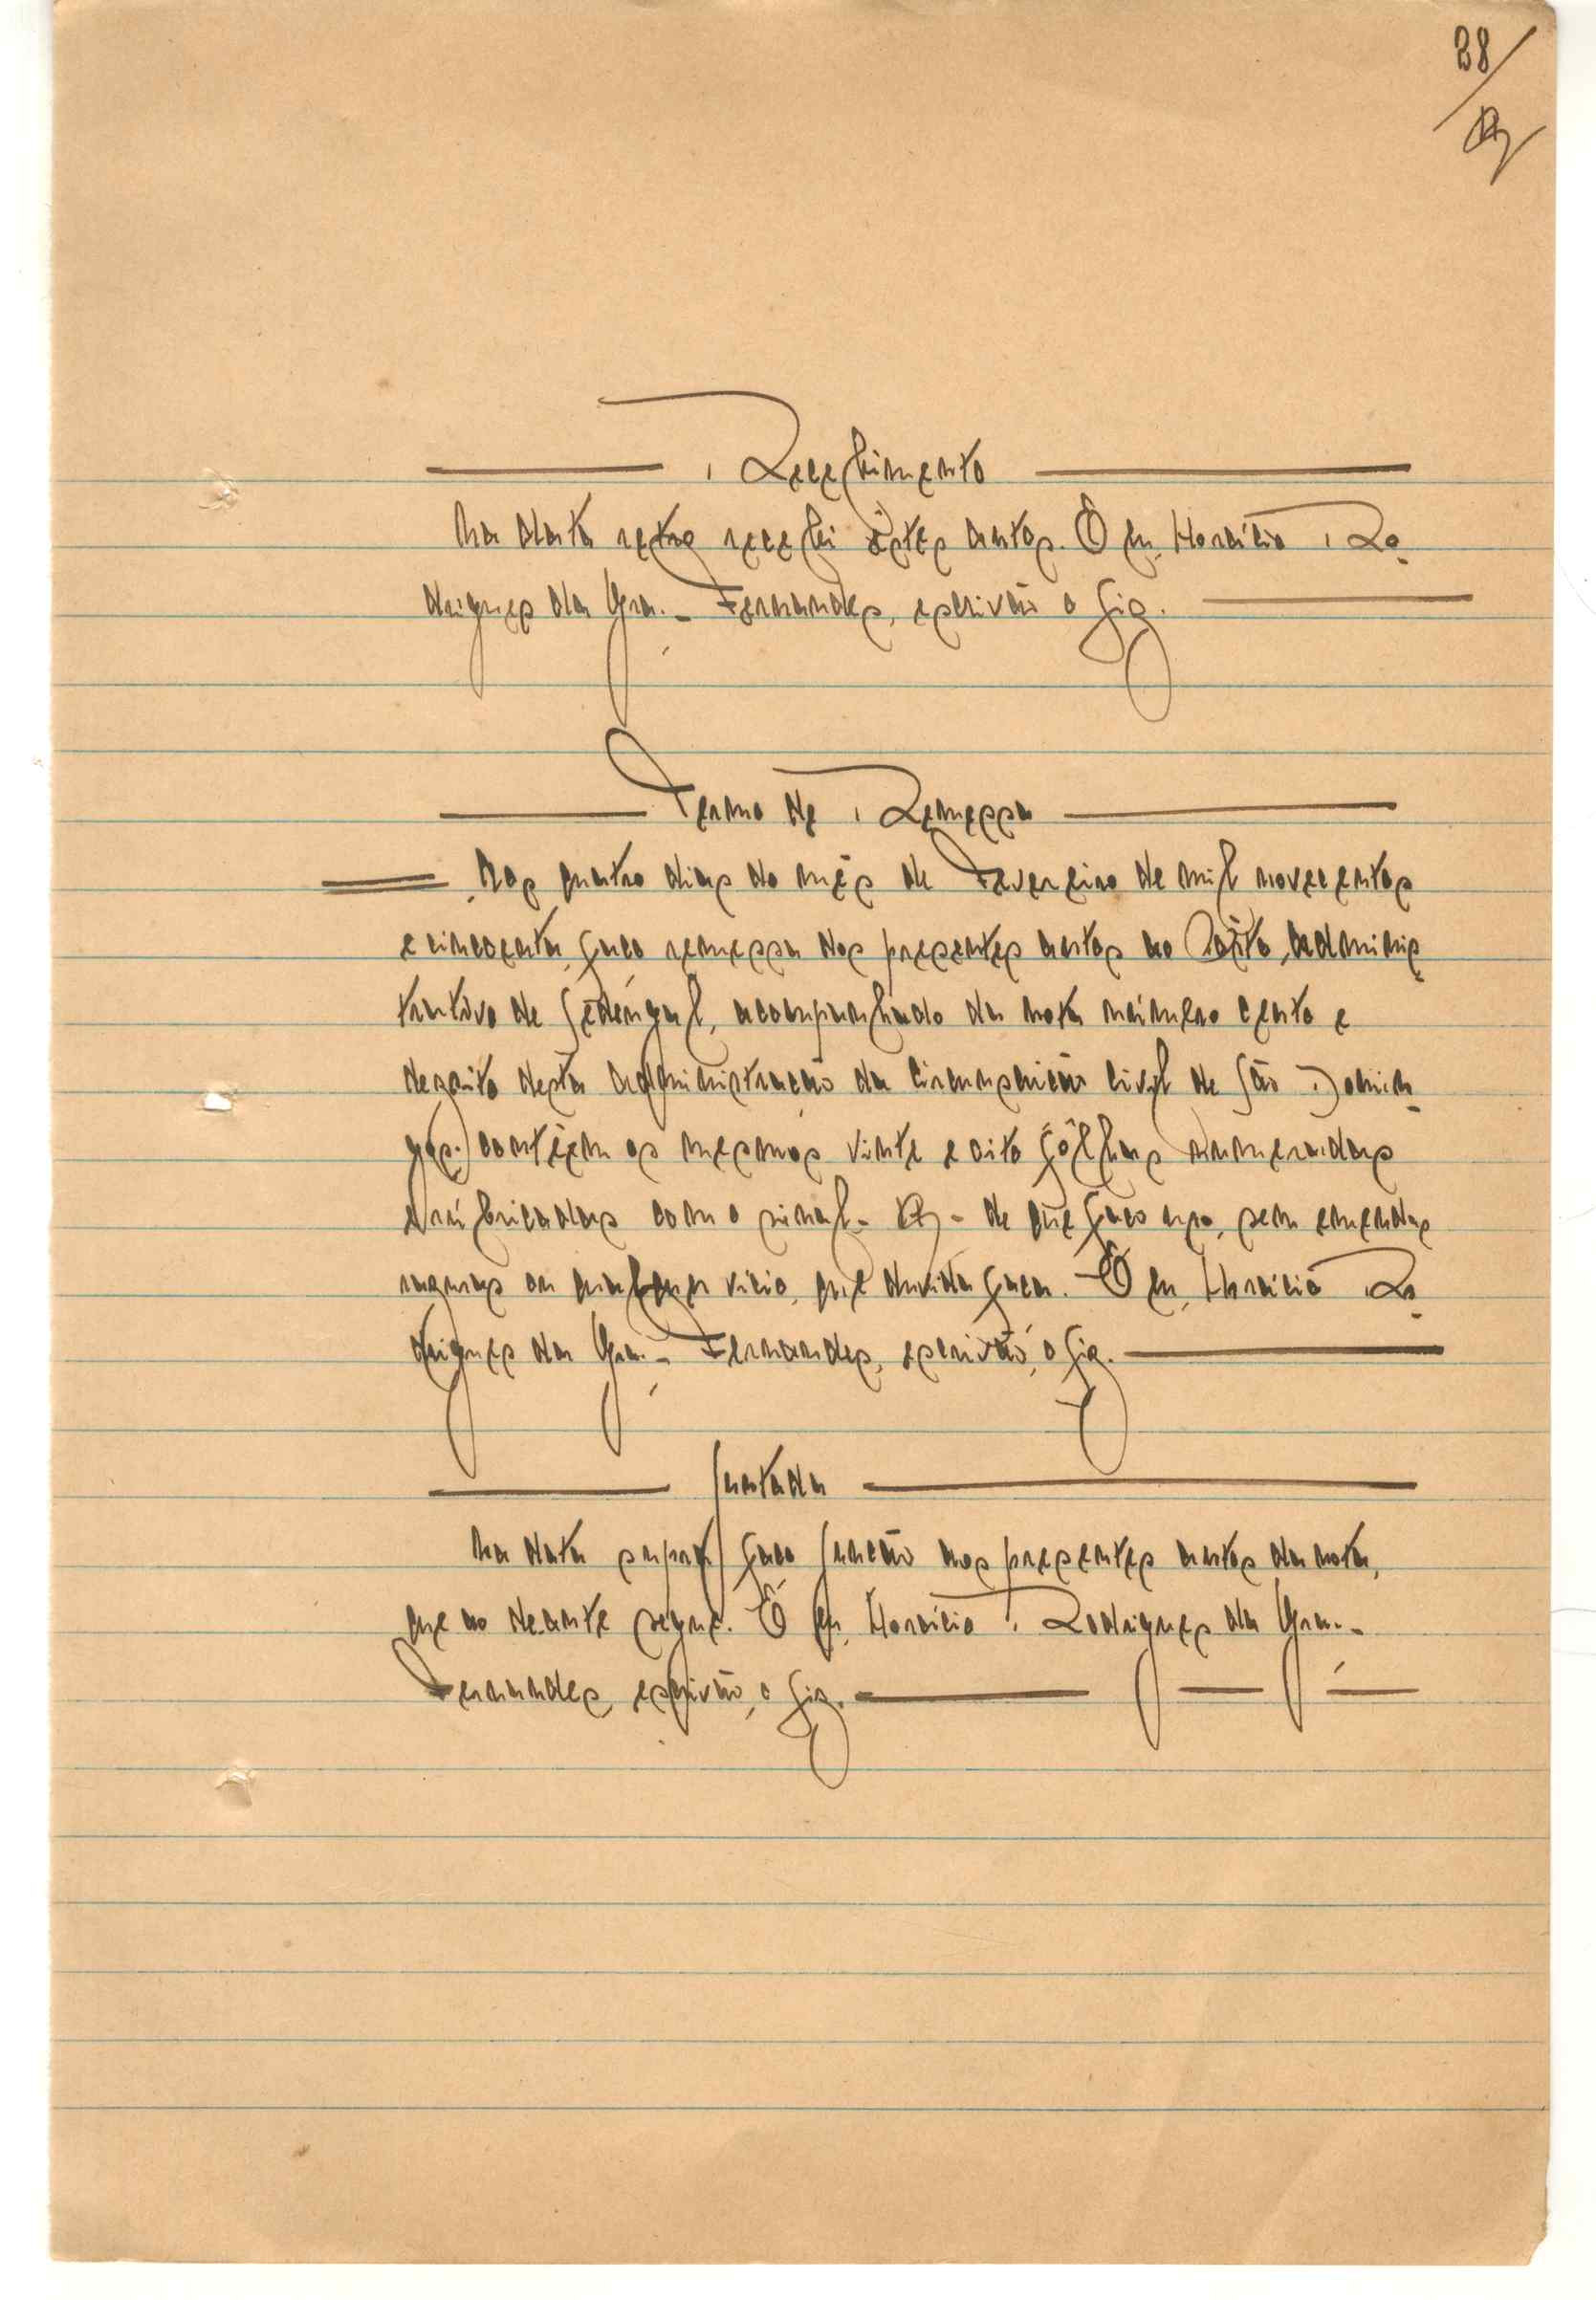 28
Recebimento
Na data retro recebi êstes autos. E eu, Horácio Ro-
drigues da Gra.- Fernandes, escrivão o fiz.
Termo de Remessa
Aos quatro dias do mês de Fevereiro de mil novecentos
e cincoenta, faço remessa dos presentes autos ao Pôsto adminis-
trativo de acompanhado da nota número cento e
dezoito desta administração da circunscrição civil de São Domin-
gos. contêem os mesmos vinte e oito fôlhas numeradas
e rúbricadas com o sinal- -de que faço uso, sem emendas
razuras ou qualquer vício, que duvida faça. E eu, Horácio Ro-
drigues da Gra.- Fernandes, escrivão, o fiz.
Juntada
Na data supra faço junção aos presentes autos da nota,
que ao deante segue. E eu, Horácio Rodrigues da Gra.-
Fernandes, escrivão, o fiz.